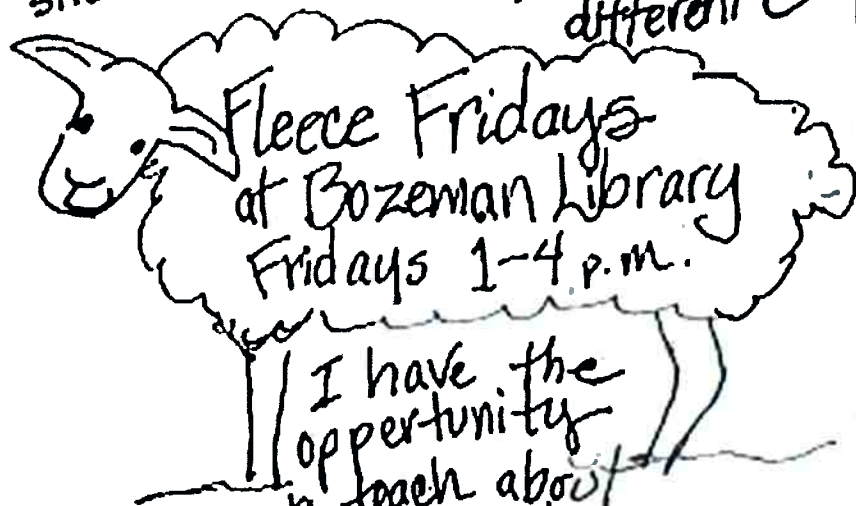 different
Fleece Fridays
at Bozeman Library
Fridays 1-4 p.m.
I have the
oppertunity
teach about